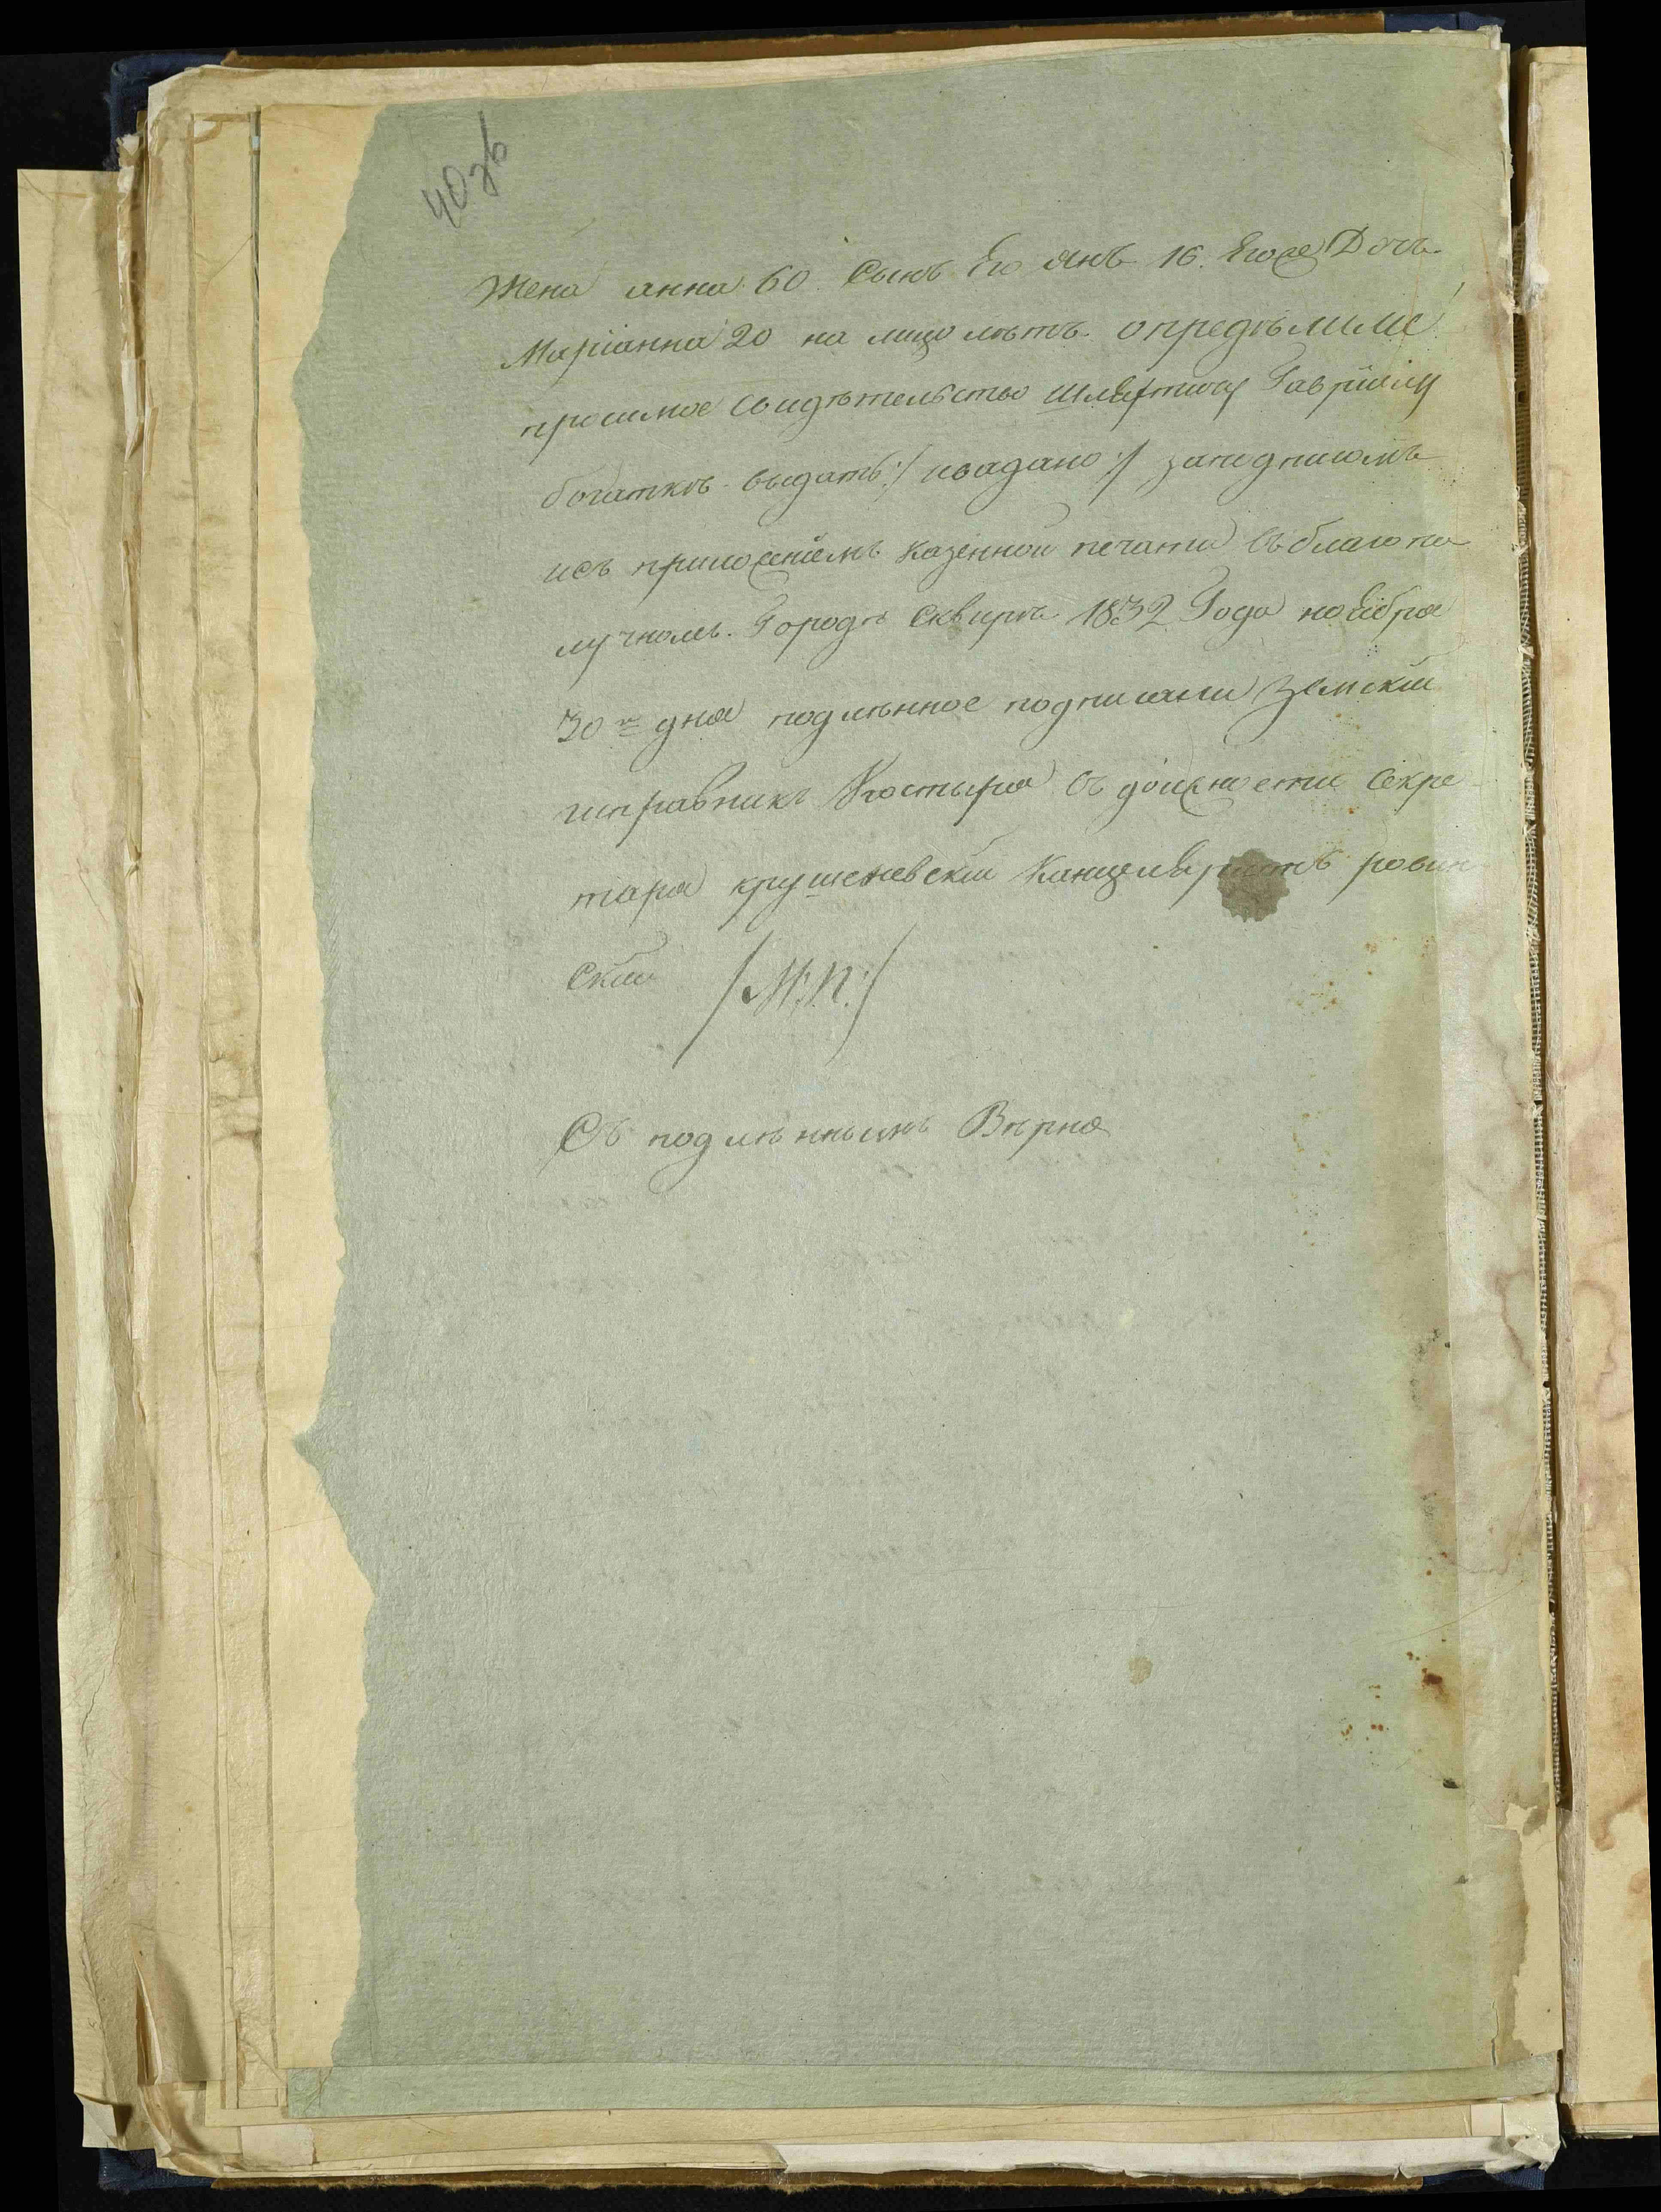 40 зв
Жена анна 60. Сынъ Его Янъ 16. Егоже Дочь
Маріанна 20 на лицо лѣтъ. определили
просимое свидѣтельство шляхтичу Гавріилу
богаткѣ выдать :/ ивадано :/ заподписомъ
исъ приложеніемъ казенной печати въ благопо
лучномъ. Городѣ Сквирѣ 1832 Года ноября
30 го дня подлѣнное подписали Земскій
исправникъ Костыра въ должности Секре
таря крушеневскій Канцеляристъ ровин
скій /М:П:/
Съ подлѣннымъ Вѣрно